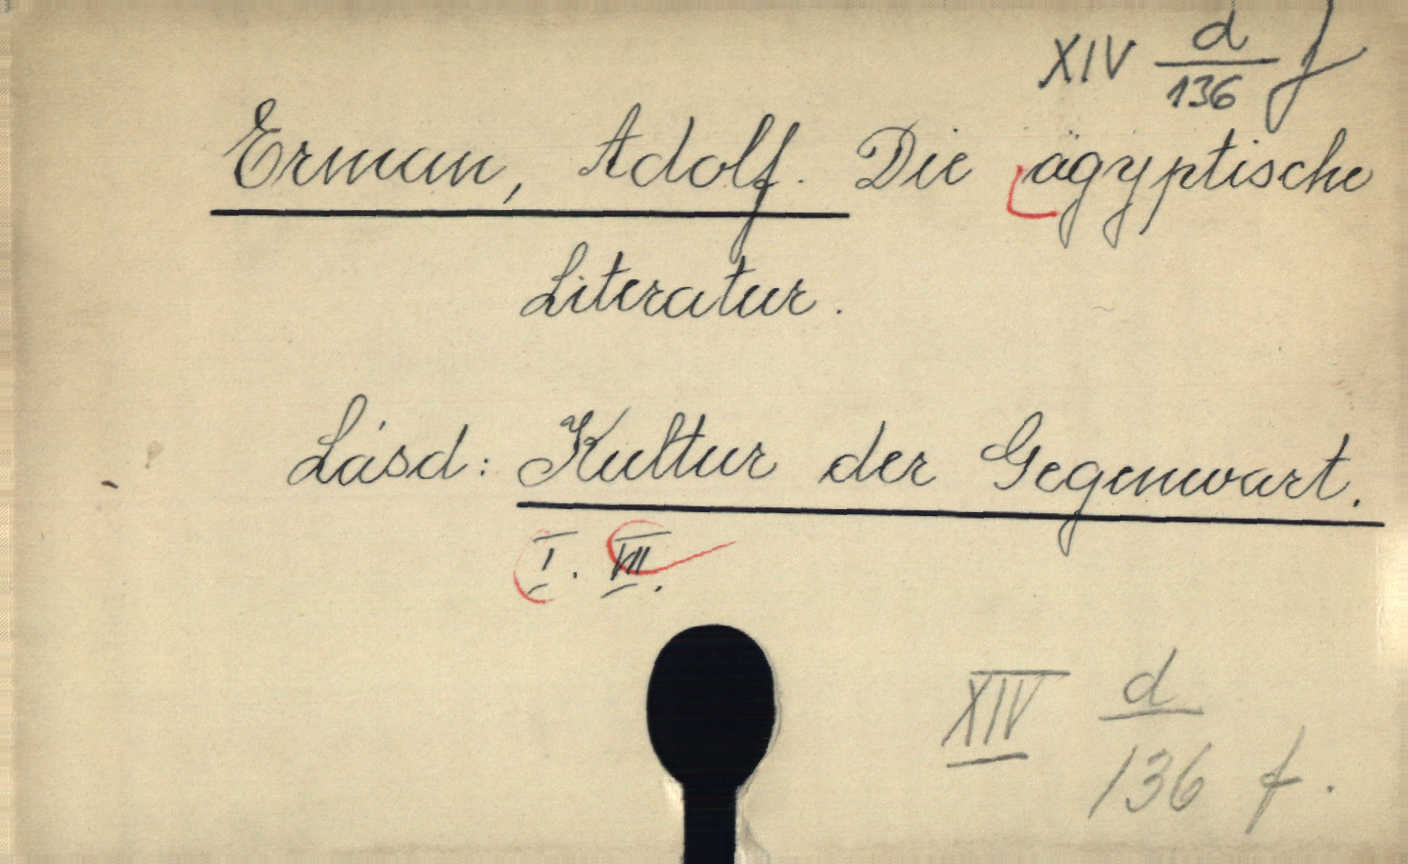 XIV d/136 f
Erman, Adolf. Die ägyptische
Literatur.
Lásd: Kultur der Gegenwart.
I. VII.
XIV d/136 f.